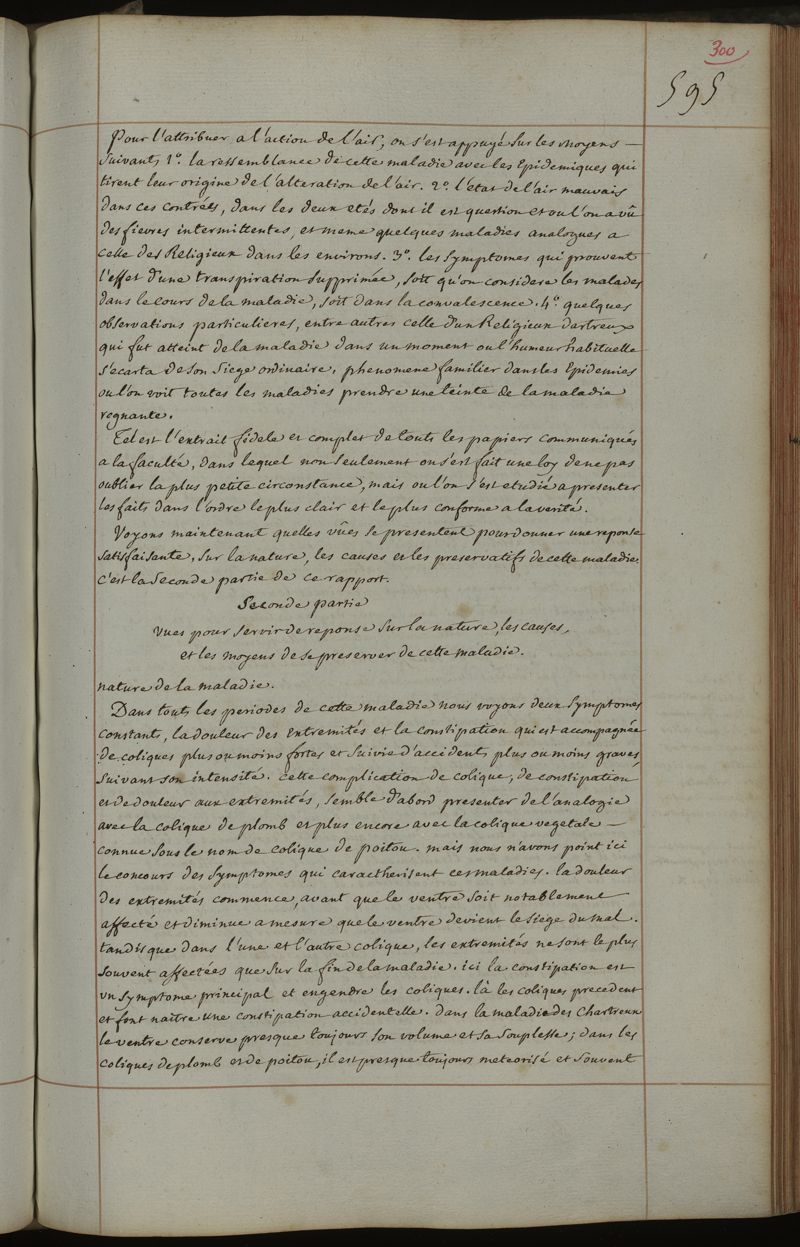 300
595
Pour l'attribuer a l'action de l'air, on s'est appuyé sur les moyens —
suivants 1°. la ressemblance de cette maladie avec les Epidemiques qui
tirent leur origine de l'alteration de l'air. 2°. l'état de l'air mauvais
dans ces contrées, dans les deux etés dont il est question et ou l'on a vû
des fievres intermittentes, et meme quelques maladies analogues a
celle des Religieux dans les environs. 3°. les symptomes qui prouvent
l'effet d'une transpiration supprimée, soit qu'on considere les malades
dans le cours de la maladie, soit dans la convalescence. 4°. quelques
observations particulieres, entre autres celle d'un Religieux dartreux
qui fut atteint de la maladie dans un moment ou l'humeur habituelle
s'ecarta de son siege ordinaire. phenomene familier dans les Epidemies
ou l'on voit toutes les maladies prendre une teinte de la maladie
regnante.
Tel est l'extrait fidele et complet de touts les papiers communiqués
a la faculté, dans lequel non seulement on s'est fait une loy de ne pas
oublier la plus petite circonstance, mais ou l'on s'est etudié a presenter
les faits dans l'ordre le plus clair et le plus conforme a la verité.
Voyons maintenant quelles vûes se presentent pour donner une reponse
satisfaisante, sur la nature, les causes et les preservatifs de cette maladie.
c'est la seconde partie de ce rapport.
Seconde partie
Vues pour servir de reponse sur la nature, les causes,
et les moyens de se preserver de cette maladie.
nature de la maladie.
Dans touts les periodes de cette maladie nous voyons deux symptomes
constants, la douleur des extremités et la constipation qui est accompagnée
de coliques plus ou moins fortes et suivie d'accidents plus ou moins graves,
suivant son intensité. cette complication de colique, de constipation
et de douleur aux extremités, semble d'abord presenter de l'analogie
avec la colique de plomb et plus encore avec la colique vegetale —
connue sous le nom de colique de poitou. mais nous n'avons point ici
le concours des symptomes qui caractherisent ces maladies. la douleur
des extremités commence, avant que le ventre soit notablement
affecté et diminue a mesure que le ventre devient le siege du mal.
tandis que dans l'une et l'autre colique, les extremités ne sont le plus
souvent affectées que sur la fin de la maladie. ici la constipation est
un symptome principal et engendre les coliques. là les coliques precedent
et font naitre une constipation accidentelle. dans la maladie des chartreux
le ventre conserve presque toujours son volume et sa souplesse; dans les
coliques de plomb et de poitou, il est presque toujours meteorisé et souvent